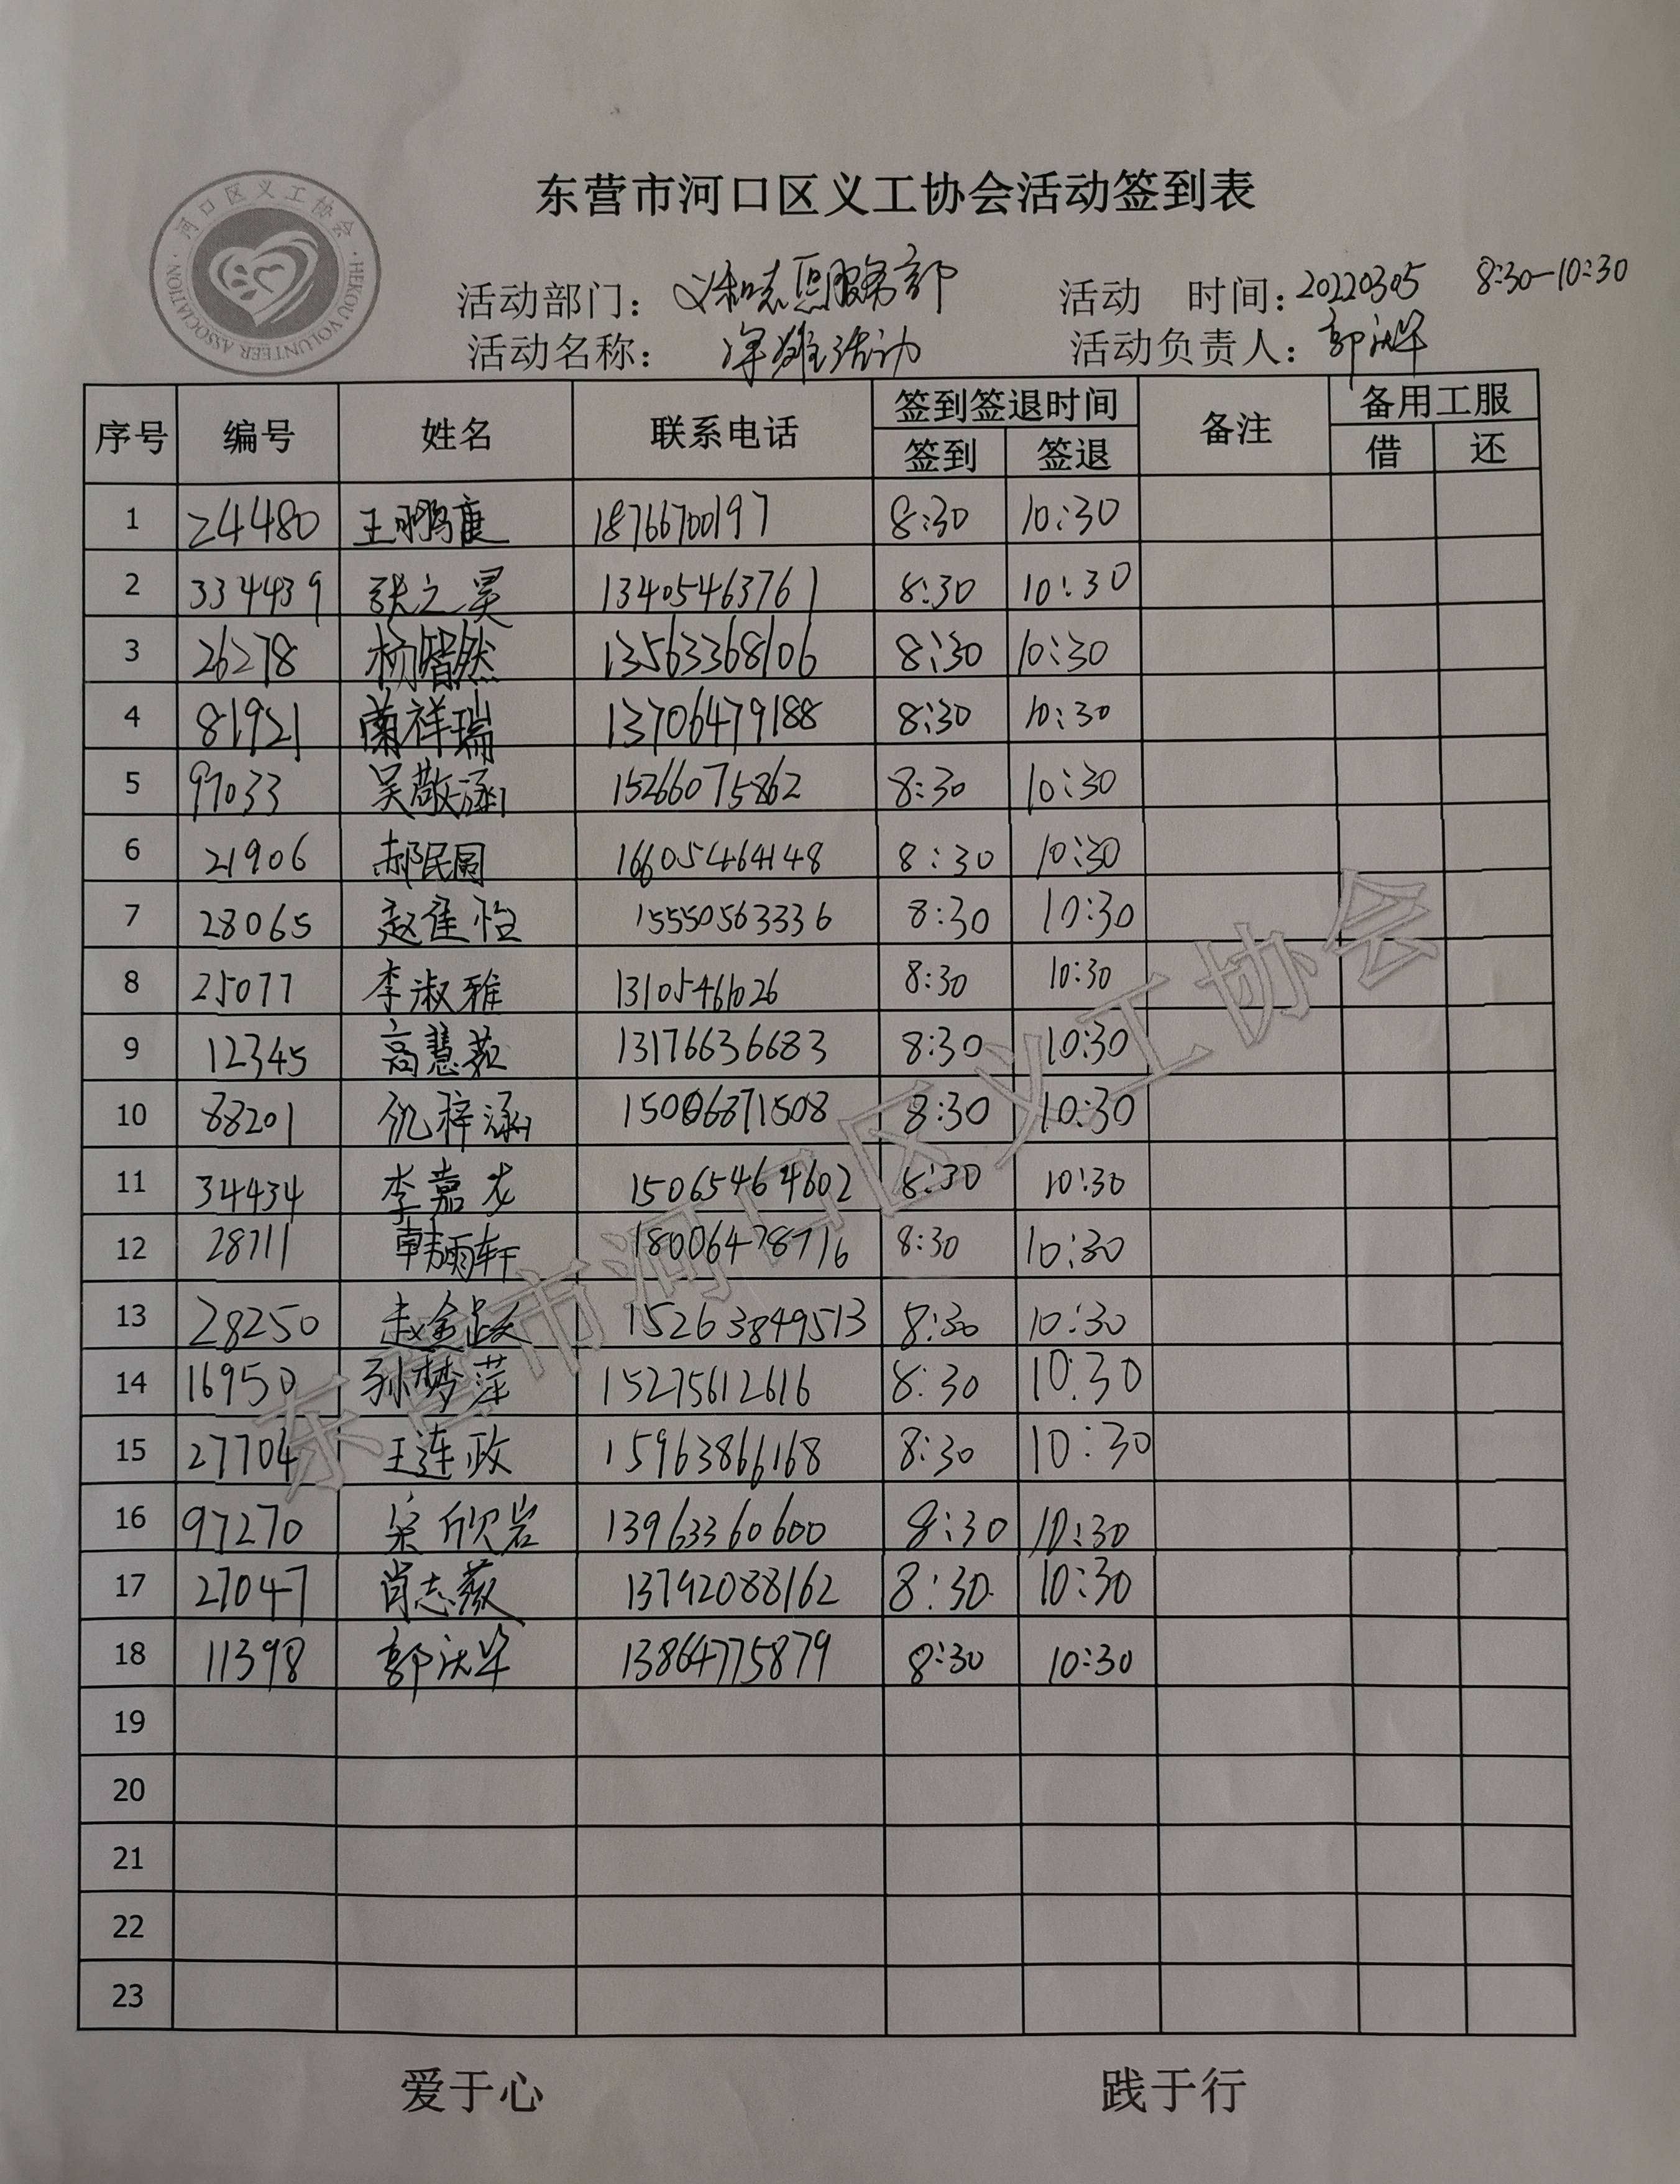 东营市河口区义工协会活动签到表
河口区义工协会
HEKOU VOLUNTEER ASSOCIATION
活动部门： 义和志愿服务部 活动 时间：20220305 8:30-10:30
活动名称： 学雷活动 活动负责人：郭洪华
序号 编号 姓名 联系电话 签到签退时间 备注 备用工服
签到 签退 借 还
1 24480 王鹏康 18766700197 8:30 10:30
2 334439 张之昊 13405463761 8:30 10:30
3 26278 杨智然 13563368106 8:30 10:30
4 81921 蔺祥瑞 13706479188 8:30 10:30
5 97033 吴敬涵 15266075862 8:30 10:30
6 21906 郝民圆 16605464148 8:30 10:30
7 28065 赵佳怡 15550563336 8:30 10:30
8 25077 李淑雅 13105461026 8:30 10:30
9 12345 高慧茹 13176636683 8:30 10:30
10 88201 仇梓涵 15006871508 8:30 10:30
11 34434 李嘉龙 15065464602 8:30 10:30
12 28711 韩雨轩 18006478716 8:30 10:30
13 28250 赵金 15263849513 8:30 10:30
14 16950 孙梦萍 15275612616 8:30 10:30
15 27704 王连政 15963866168 8:30 10:30
16 97270 宋欣岩 13963360600 8:30 10:30
17 27047 肖志薇 13792088162 8:30 10:30
18 11398 郭洪华 13864775879 8:30 10:30
19
20
21
22
23
东营市河口区义工协会
爱于心 践于行